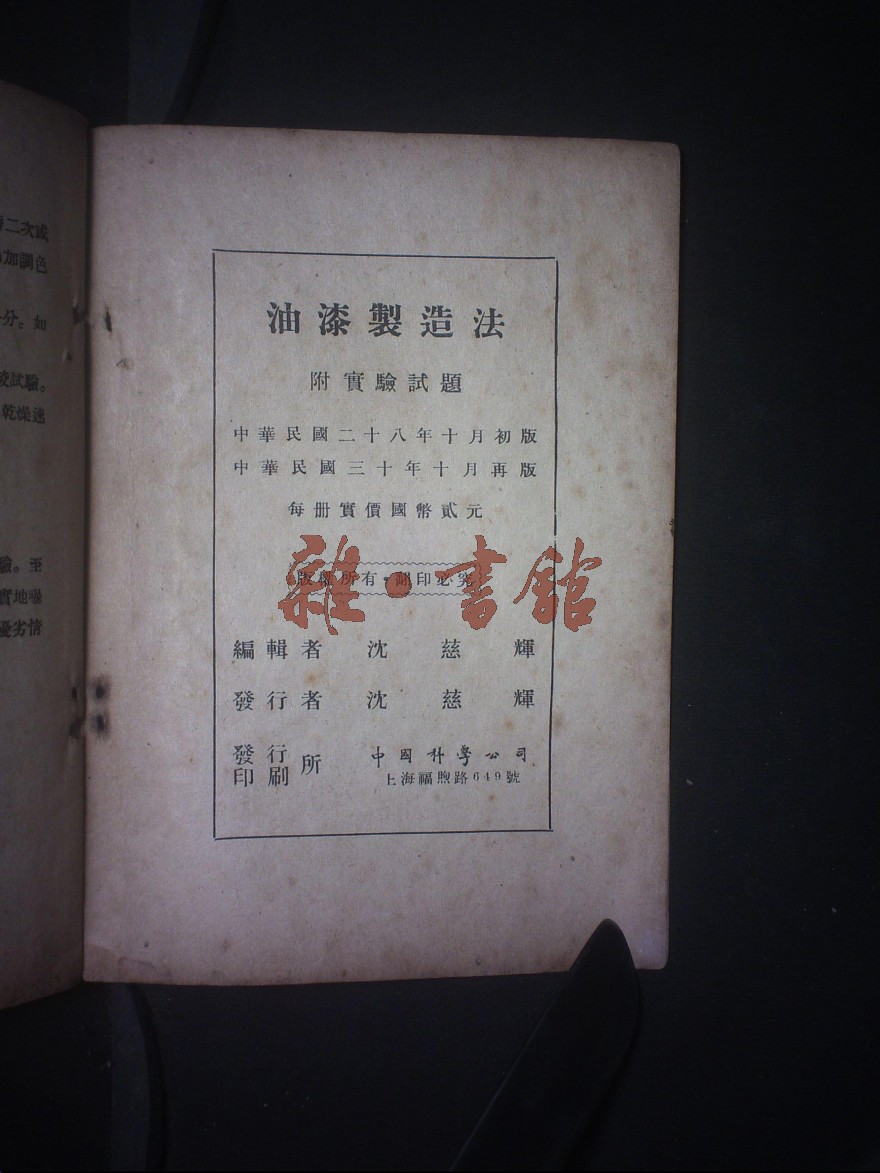 油漆製造法
附實驗試題
中華民國二十八年十月初版
中華民國三十年十月再版
每册實價國幣貳元
版權所有・翻印必究
雜・書館
編輯者 沈慈輝
發行者 沈慈輝
發行
印刷 所 中國科學公司
上海福煦路649號
二次或
加調色
分。如
試驗。
乾燥速
驗。至
實地曝
優劣情